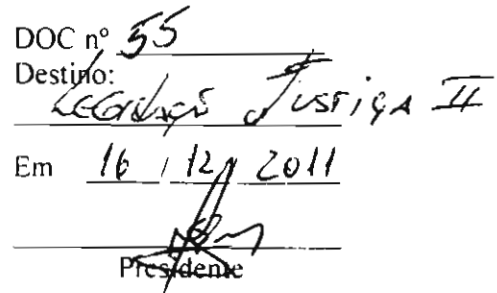 DOC nº 55
Destino:
Legislação Justiça II
Em 16 / 12 / 2011
Presidente